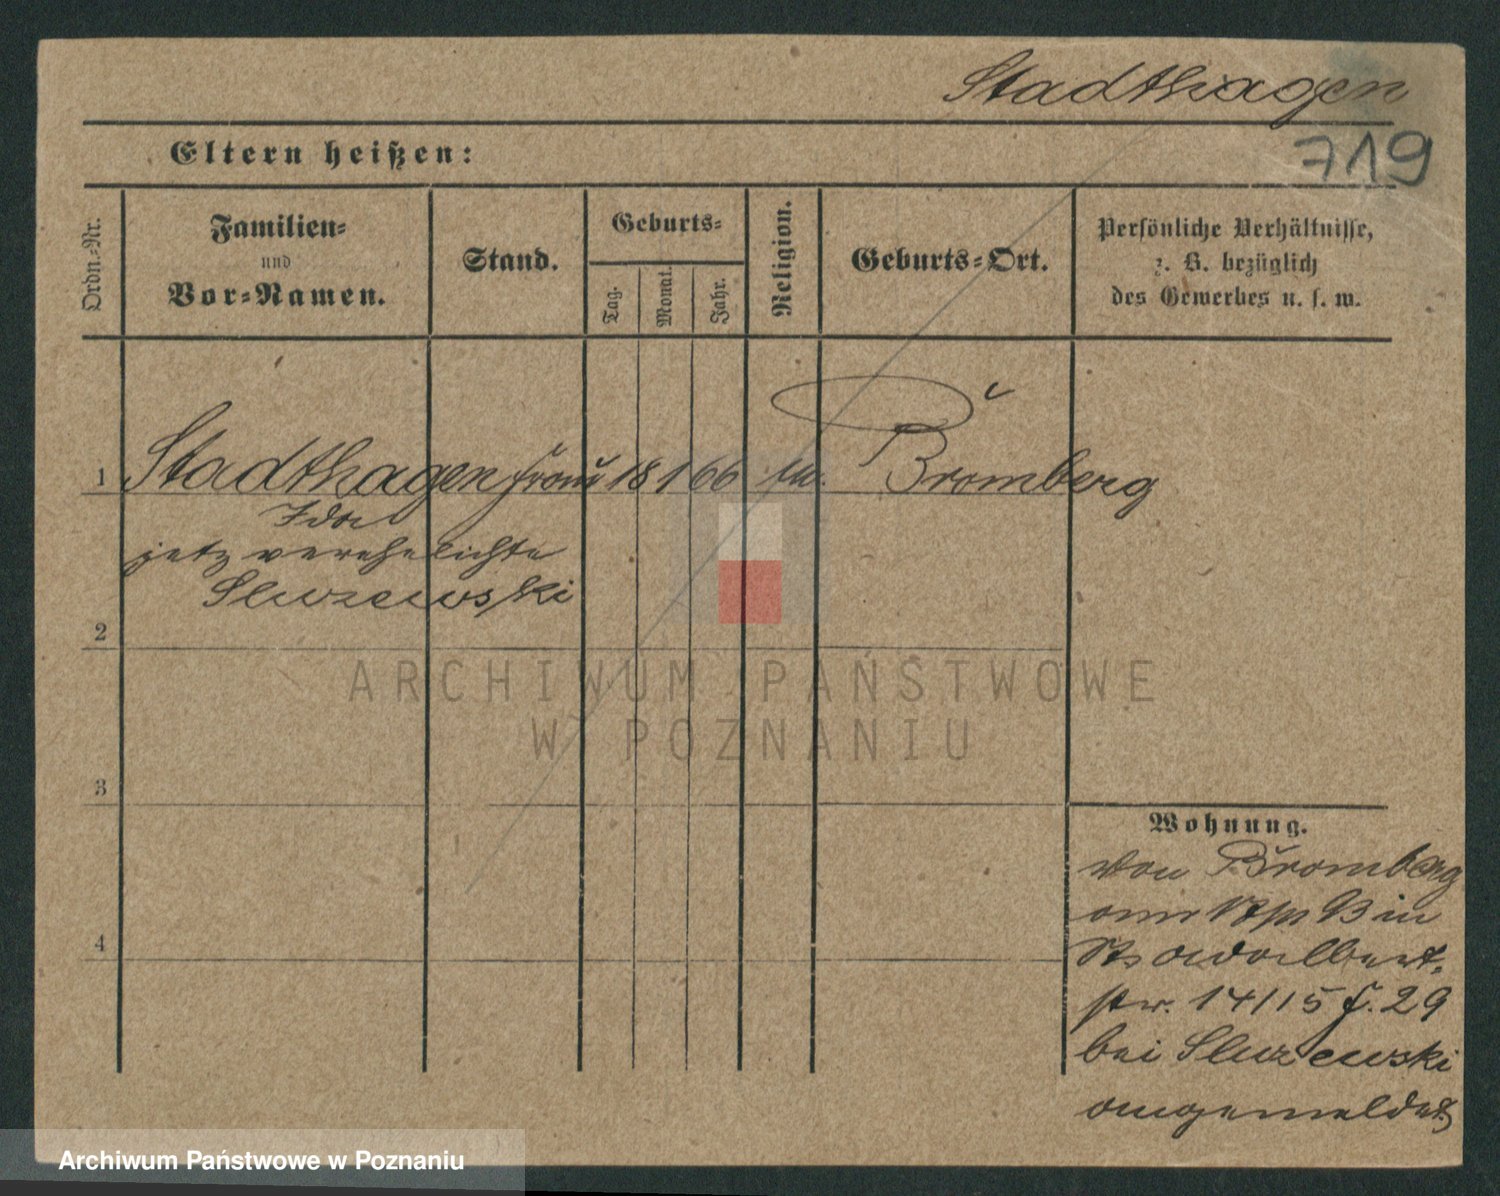 Stadthagen
719
Eltern heißen:
Ordn.-Nr.
Familien-
und
Vor-Namen.
Stand.
Geburts-
Tag.
Monat.
Jahr.
Religion.
Geburts-Ort.
Persönliche Verhältnisse,
z. B. bezüglich
des Gewerbes u. s. w.
1 Stadthagen Frau 18 1 66 m. Bromberg
Ida
jetz verehelichte
Sluzewski
2
3
4
Wohnung.
von Bromberg
93 in
St. Adalbert-
str. 14/15 f. 29
bei Sluzewski
angemeldet
ARCHIWUM PAŃSTWOWE
W POZNANIU
Archiwum Państwowe w Poznaniu